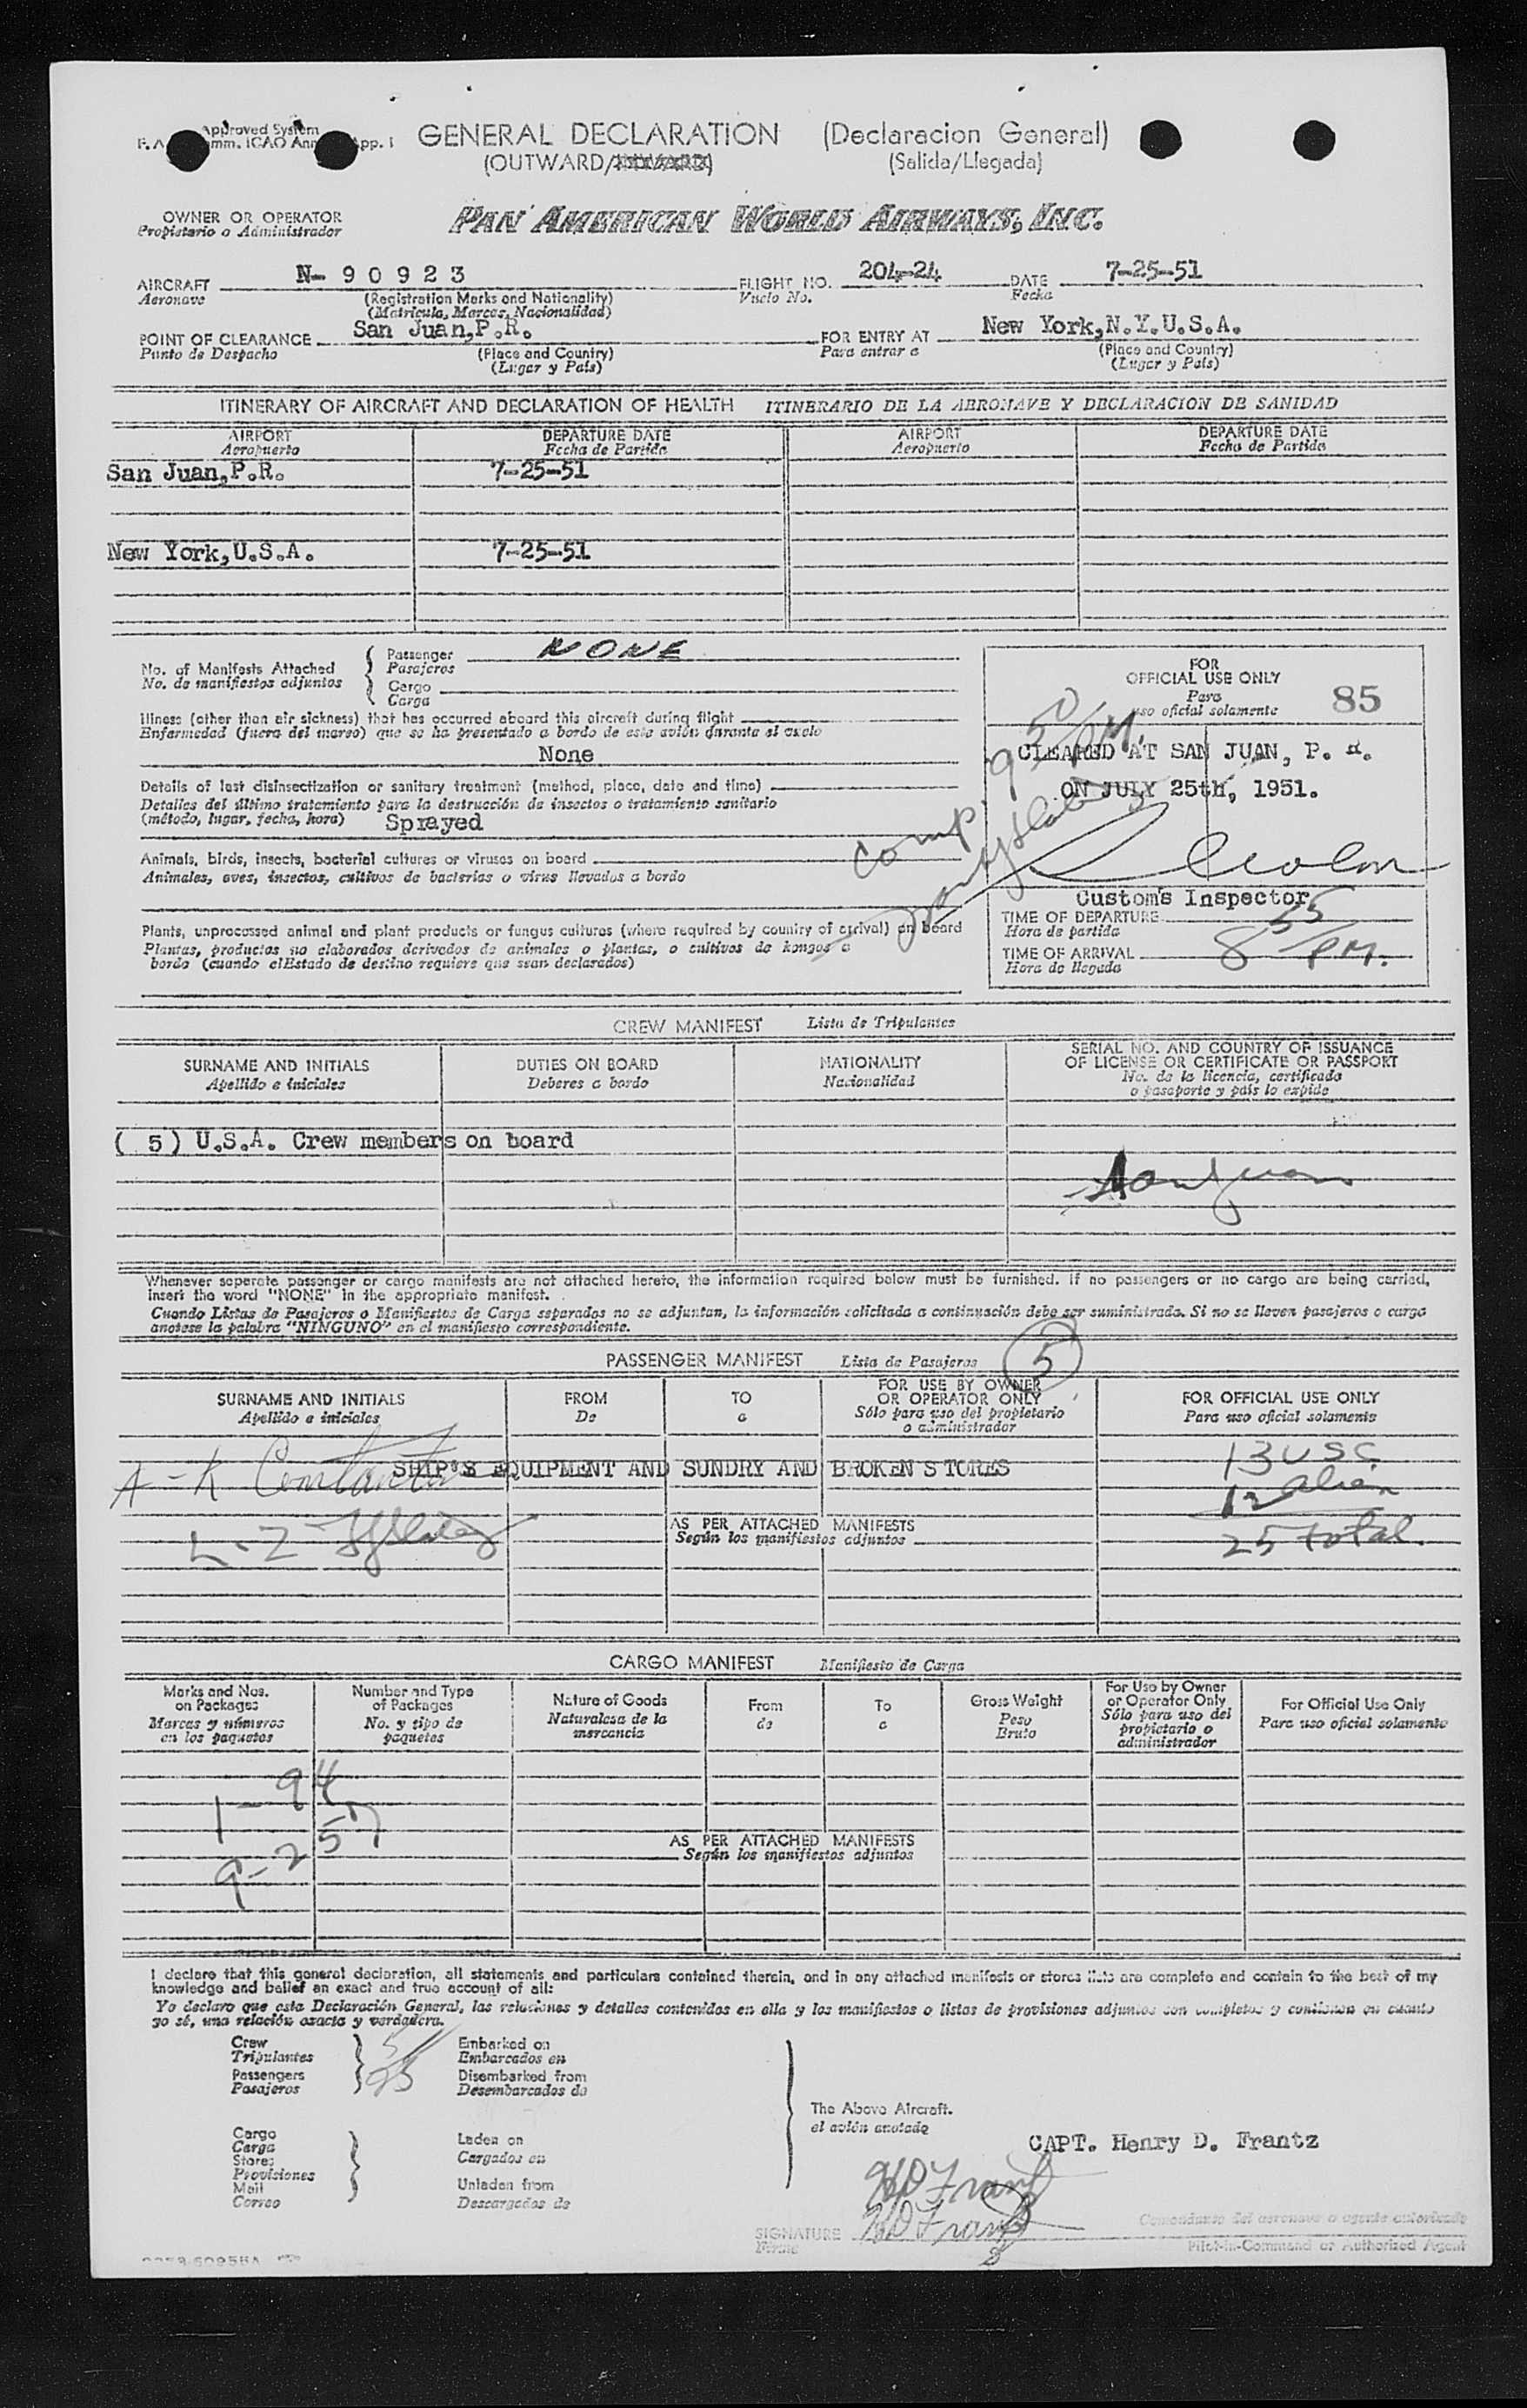 Approved System
GENERAL DECLARATION (Declaracion General)
(OUTWARD/INWARD) (Salida/Llegada)
OWNER OR OPERATOR
Propietario o Administrador
PAN AMERICAN WORLD AIRWAYS, INC.
AIRCRAFT N-90923 FLIGHT NO. 204-24 DATE 7-25-51
Aeronave (Registration Marks and Nationality) Vuelo No. Fecha
(Matricula, Marcas, Nacionalidad)
POINT OF CLEARANCE San Juan,P.R. FOR ENTRY AT New York,N.Y.U.S.A.
Punto de Despacho (Place and Country) Para entrar a (Place and Country)
(Lugar y País) (Lugar y País)
ITINERARY OF AIRCRAFT AND DECLARATION OF HEALTH ITINERARIO DE LA AERONAVE Y DECLARACION DE SANIDAD
AIRPORT DEPARTURE DATE AIRPORT DEPARTURE DATE
Aeropuerto Fecha de Partida Aeropuerto Fecha de Partida
San Juan,P.R. 7-25-51
New York,U.S.A. 7-25-51
No. of Manifests Attached
No. de manifiestos adjuntos
Passenger NONE
Pasajeros
Cargo
Carga
Illness (other than air sickness) that has occurred aboard this aircraft during flight
Enfermedad (fuera del mareo) que se ha presentado a bordo de este avión durante el vuelo
None
Details of last disinsectization or sanitary treatment (method, place, date and time)
Detalles del último tratamiento para la destrucción de insectos o tratamiento sanitario
(método, lugar, fecha, hora) Sprayed
Animals, birds, insects, bacterial cultures or viruses on board
Animales, aves, insectos, cultivos de bacterias o virus llevados a bordo
Plants, unprocessed animal and plant products or fungus cultures (where required by country of arrival) on board
Plantas, productos no elaborados derivados de animales o plantas, o cultivos de hongos a
bordo (cuando elEstado de destino requiere que sean declarados)
FOR
OFFICIAL USE ONLY
Para
uso oficial solamente
85
comp. 9 50 PM.
CLEARED AT SAN JUAN, P. R.
ON JULY 25th, 1951.
Custom's Inspector
TIME OF DEPARTURE
Hora de partida
TIME OF ARRIVAL 8 55 PM.
Hora de llegada
CREW MANIFEST Lista de Tripulantes
SURNAME AND INITIALS DUTIES ON BOARD NATIONALITY SERIAL NO. AND COUNTRY OF ISSUANCE
OF LICENSE OR CERTIFICATE OR PASSPORT
Apellido e iniciales Deberes a bordo Nacionalidad No. de la licencia, certificado
o pasaporte y país lo expide
( 5) U.S.A. Crew members on board
San Juan
Whenever separate passenger or cargo manifests are not attached hereto, the information required below must be furnished. If no passengers or no cargo are being carried,
insert the word "NONE" in the appropriate manifest.
Cuando Listas de Pasajeros o Manifiestos de Carga separados no se adjuntan, la información solicitada a continuación debe ser suministrada. Si no se llevan pasajeros o carga
anotese la palabra "NINGUNO" en el manifiesto correspondiente.
PASSENGER MANIFEST Lista de Pasajeros 5
SURNAME AND INITIALS FROM TO FOR USE BY OWNER
OR OPERATOR ONLY FOR OFFICIAL USE ONLY
Apellido e iniciales De a Sólo para uso del propietario
o administrador Para uso oficial solamente
A-K
SHIP'S EQUIPMENT AND SUNDRY AND BROKEN STORES
13 USC
12 alien
25 total
L-Z
AS PER ATTACHED MANIFESTS
Según los manifiestos adjuntos
CARGO MANIFEST Manifiesto de Carga
Marks and Nos.
on Packages
Marcas y números
en los paquetes
Number and Type
of Packages
No. y tipo de
paquetes
Nature of Goods
Naturalesa de la
mercancia
From
de
To
a
Gross Weight
Peso
Bruto
For Use by Owner
or Operator Only
Sólo para uso del
propietario o
administrador
For Official Use Only
Para uso oficial solamente
1-94
9-257
AS PER ATTACHED MANIFESTS
Según los manifiestos adjuntos
I declare that this general declaration, all statements and particulars contained therein, and in any attached manifests or stores lists are complete and contain to the best of my
knowledge and belief an exact and true account of all:
Yo declaro que esta Declaración General, las relaciones y detalles contenidos en ella y los manifiestos o listas de provisiones adjuntos son completos y contienen en cuanto
yo sé, una relación exacta y verdadera.
Crew 5 Embarked on
Tripulantes Embarcados en
Passengers 25 Disembarked from
Pasajeros Desembarcados de
The Above Aircraft.
el avión anotado
Cargo
Carga
Stores
Provisiones
Mail
Correo
Laden on
Cargados en
Unladen from
Descargados de
CAPT. Henry D. Frantz
HD Frantz
SIGNATURE HD Frantz
Firma
Comandante del aeronave o agente autorizado
Pilot-in-Command or Authorized Agent